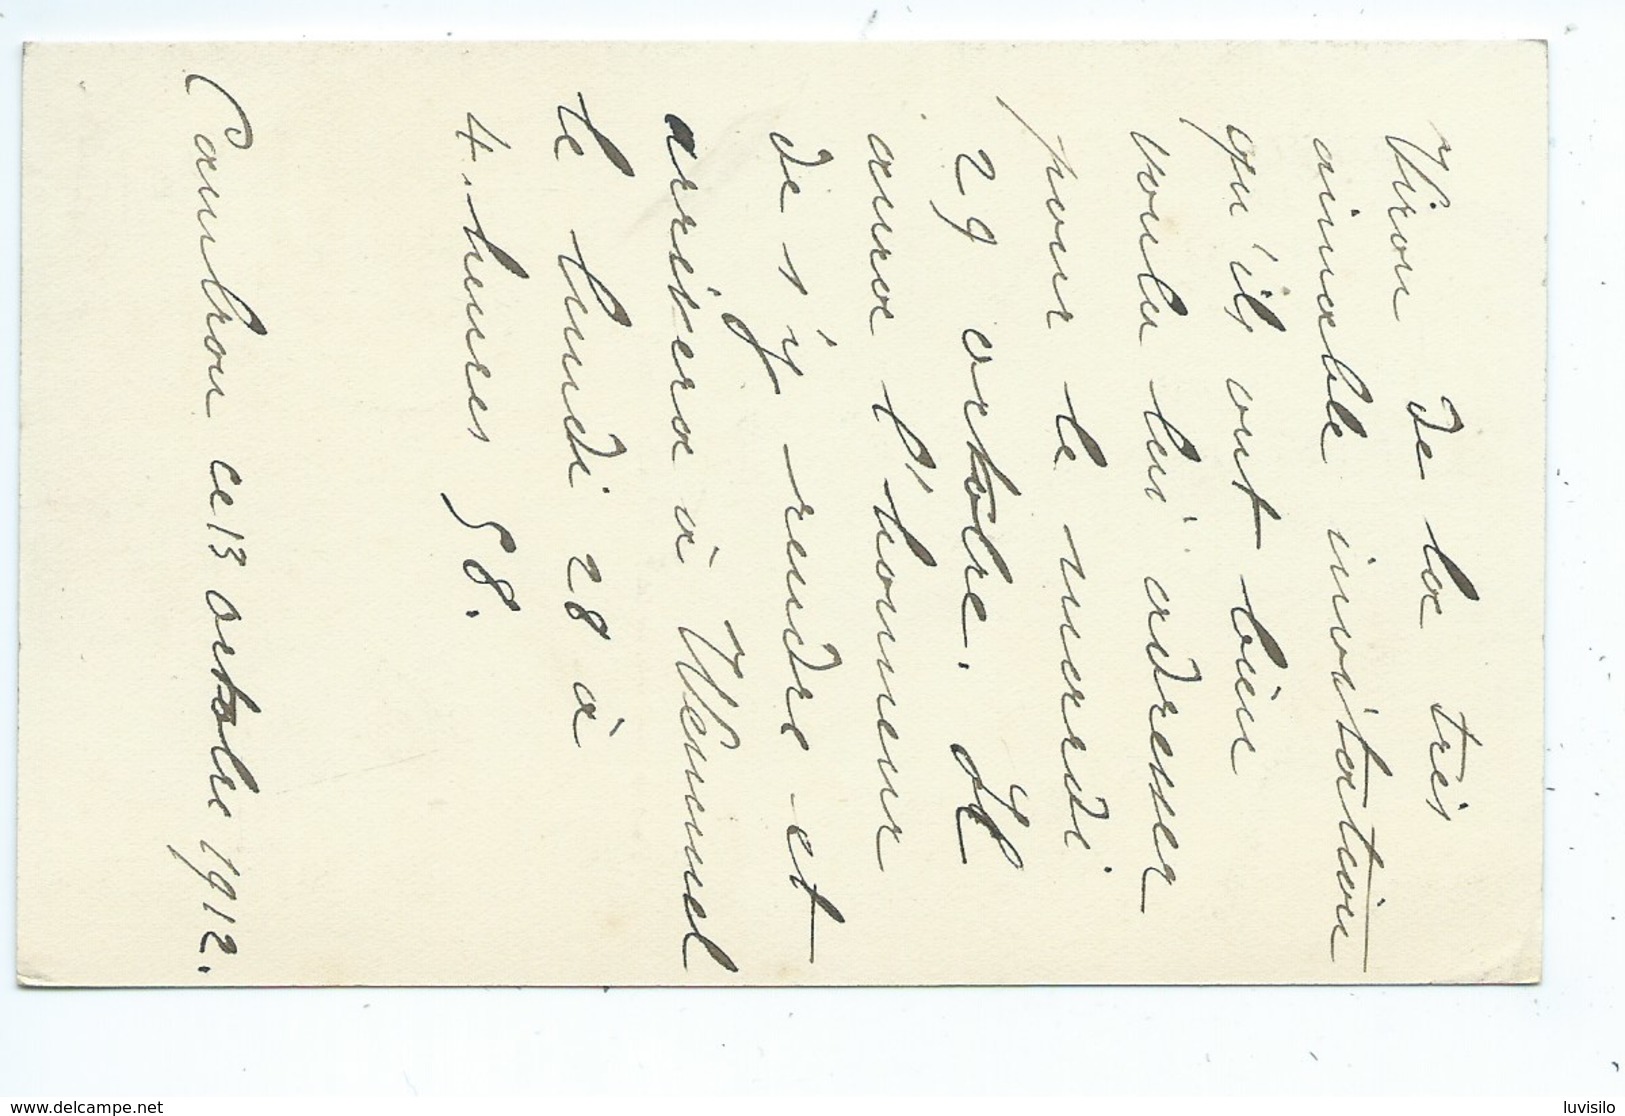 Viron de la très
aimable invitation
qu'ils ont bien
voulu lui adresser
pour le mardi
29 octobre. Il
aura l'honneur
de s'y rendre et
arrivera à Wemmel
le lundi 28 à
4 heures 58.
Cambron ce 13 octobre 1912.
www.delcampe.net
luvisilo